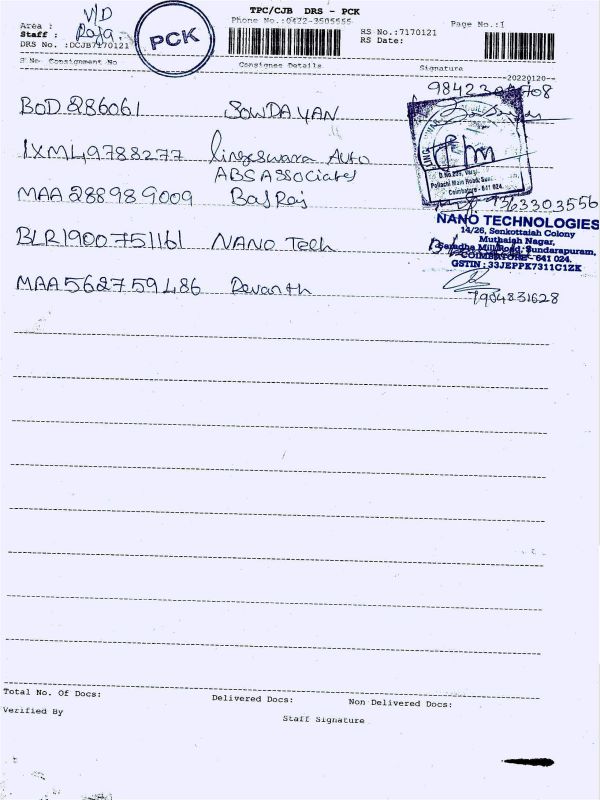 TPC/CJB DRS - PCK
V/D
Area :
Phone No.:0422-3505555
Page No.:1
Staff : Raja
PCK
RS No.:7170121
DRS No. :DCJB7170121
RS Date:
S No Consignment No Consignee Details Signature
--20220120--
BOD286061 SOWDAYAN
IXM49788277 lingeswara Auto
ABS Associates
D.No.239,
Pollachi Main Road,
Coimbatore - 641 024.
MAA288989009 BalRaj 9363303556
NANO TECHNOLOGIES
14/26, Senkottaiah Colony
Muthaiah Nagar,
BLR1900751161 NANO Tech
Saradha Mill Road, Sundarapuram,
COIMBATORE - 641 024.
GSTIN : 33JEPPK7311C1ZK
MAA562759486 Devanth
7904831628
Total No. Of Docs: Delivered Docs: Non Delivered Docs:
Verified By
Staff Signature